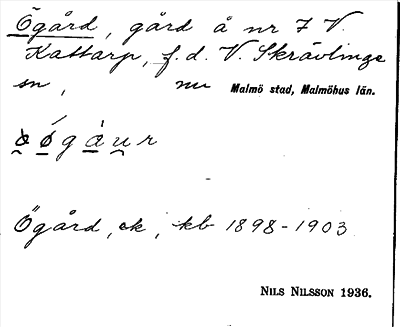 Ögård, gård å nr 7 V.
Kattarp, f.d. V. Skrävlinge
sn, nu Malmö stad, Malmöhus län.
ǿgàu̯r
Ögård, ek, kb 1898-1903
NILS NILSSON 1936.